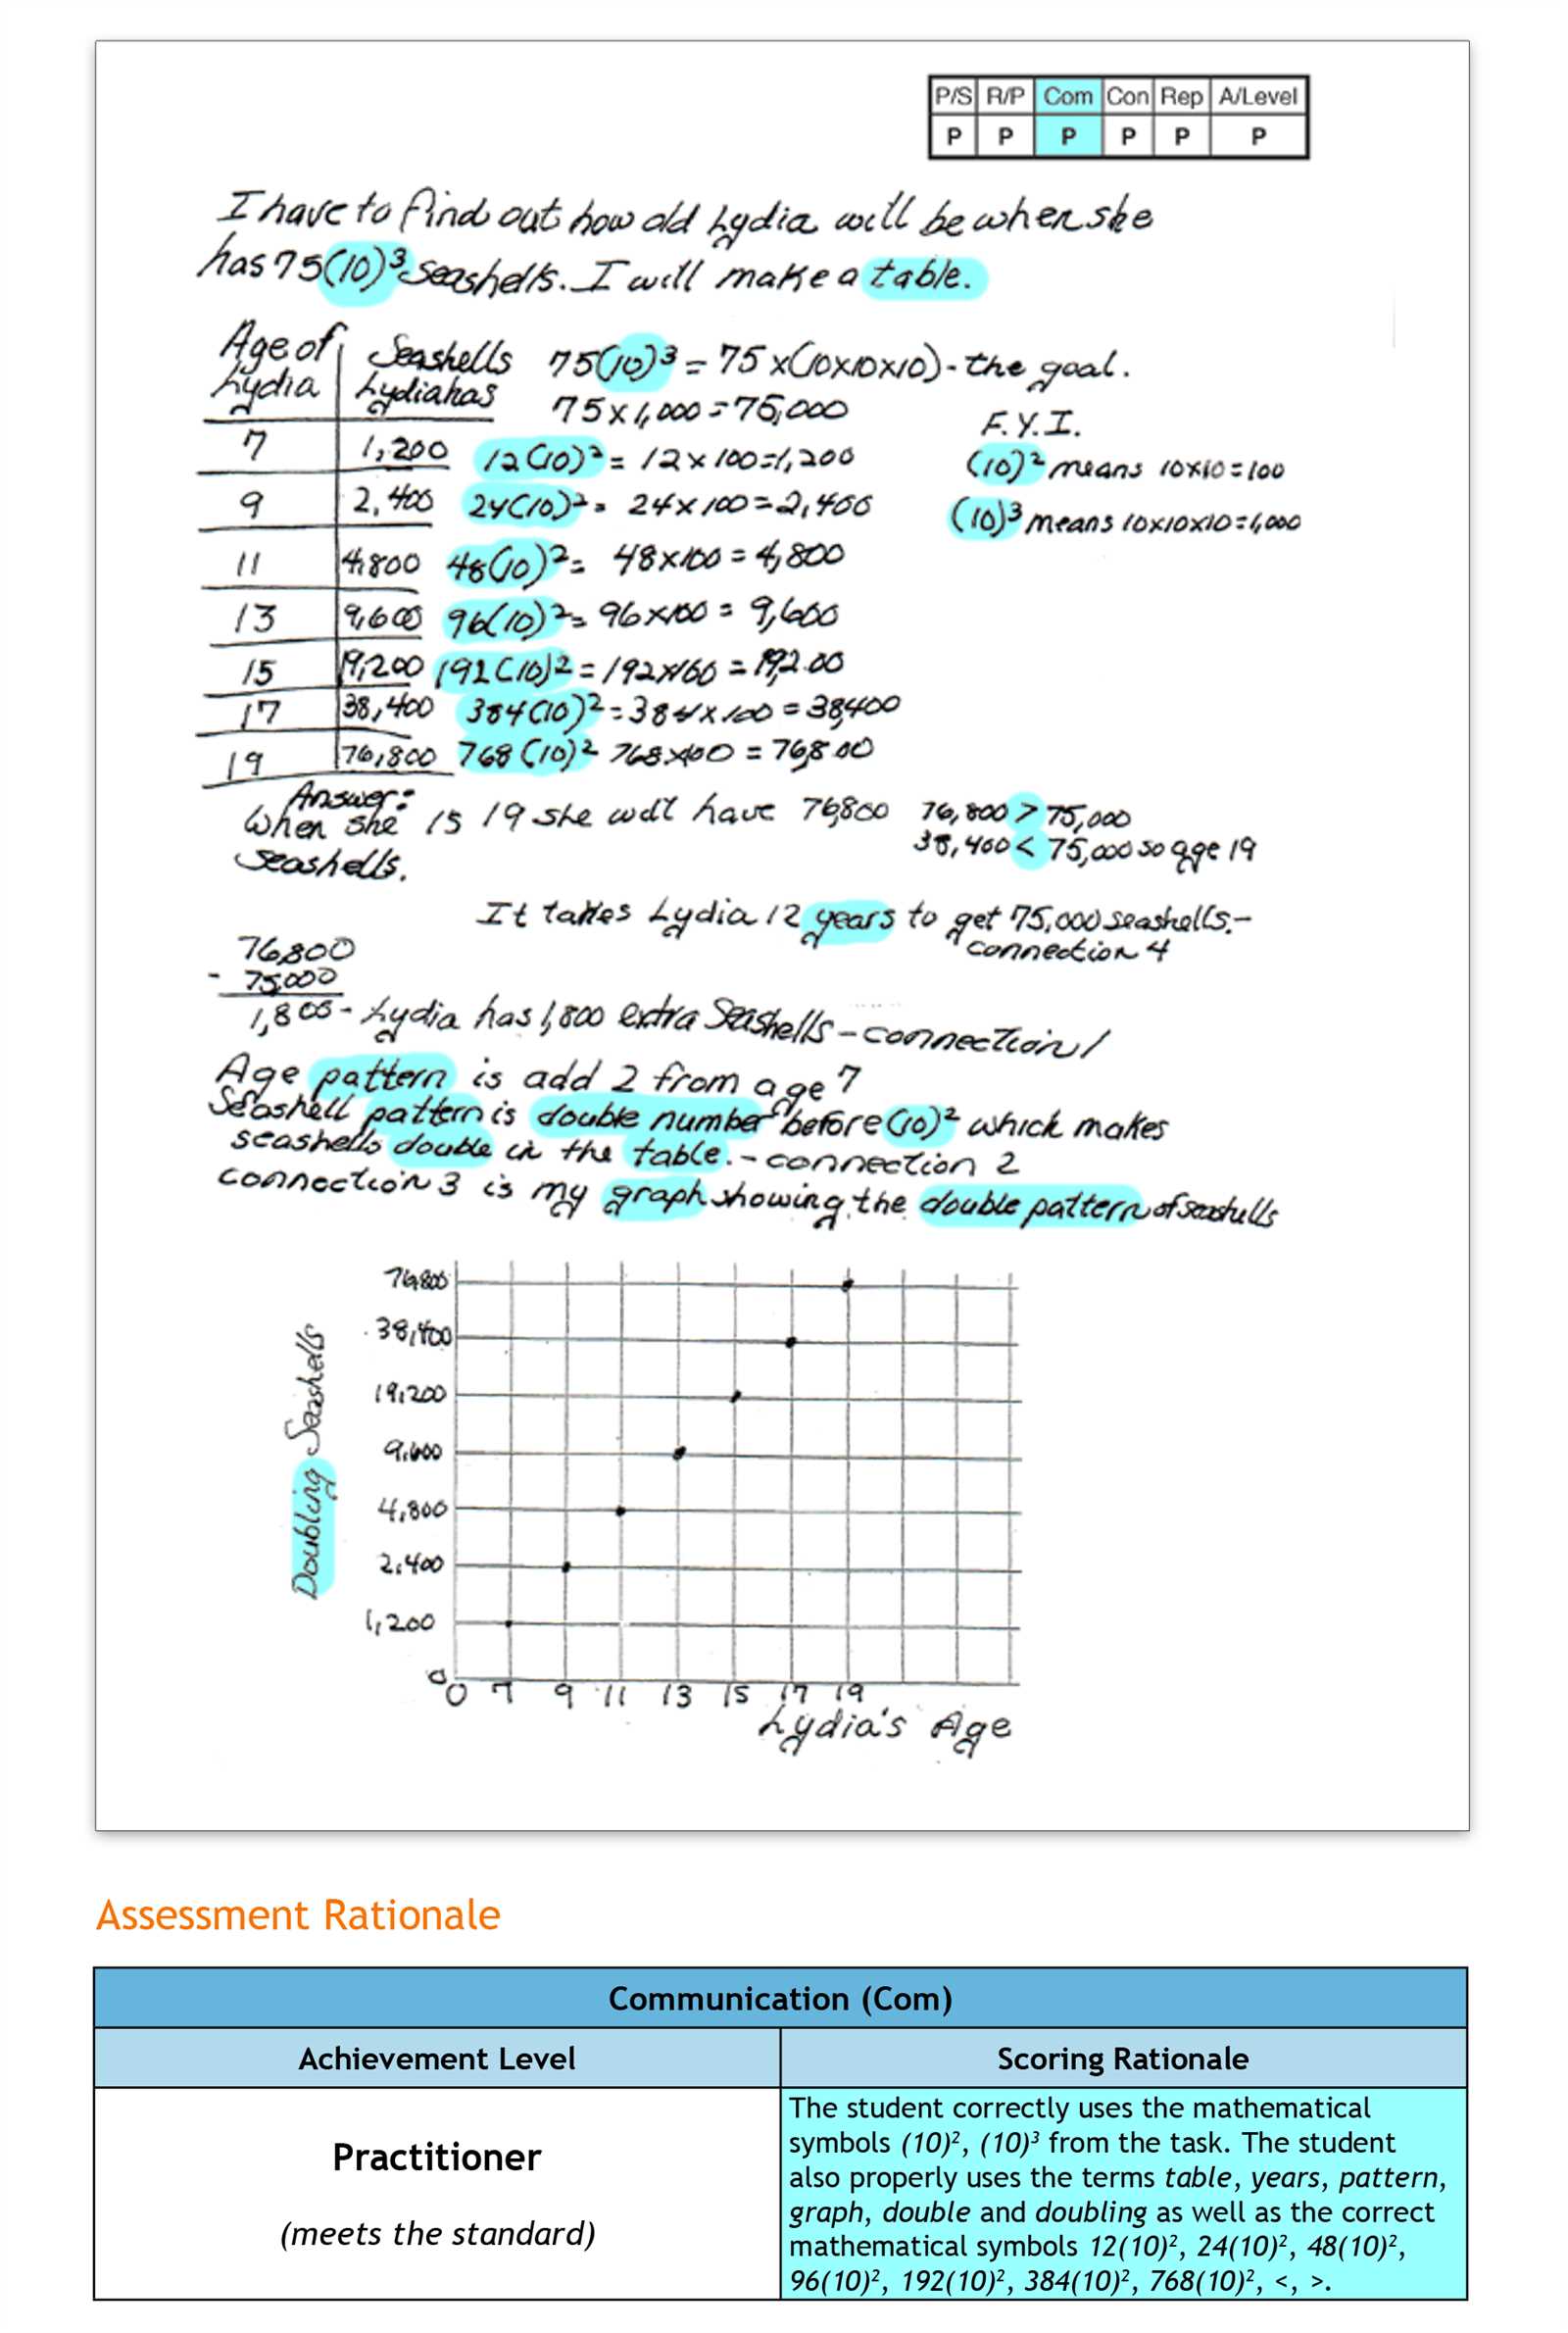 P/S R/P Com Con Rep A/Level
P P P P P P
I have to find out how old Lydia will be when she
has 75(10)³ seashells. I will make a table.
Age of Lydia | Seashells Lydia has
75(10)³ = 75 x (10x10x10) - the goal.
75 x 1,000 = 75,000
F.Y.I.
(10)² means 10x10 = 100
(10)³ means 10x10x10 = 1,000
7 1,200 12(10)² = 12 x 100 = 1,200
9 2,400 24(10)² = 24 x 100 = 2,400
11 4,800 48(10)² = 48x100 = 4,800
13 9,600 96(10)² = 96x100 = 9,600
15 19,200 192(10)² = 192x100 = 19,200
17 38,400 384(10)² = 384x100 = 38,400
19 76,800 768(10)² 768x100 = 76,800
Answer:
When she is 19 she will have 76,800
seashells.
76,800 > 75,000
38,400 < 75,000 so age 19
It takes Lydia 12 years to get 75,000 seashells. -
connection 4
76,800
- 75,000
1,800 - Lydia has 1,800 extra seashells - connection 1
Age pattern is add 2 from age 7
Seashell pattern is double number before (10)² which makes
seashells double in the table. - connection 2
connection 3 is my graph showing the double pattern of seashells
Doubling Seashells
76,800
38,400
19,200
9,600
4,800
2,400
1,200
0
0 7 9 11 13 15 17 19
Lydia's Age
Assessment Rationale
Communication (Com)
Achievement Level
Scoring Rationale
Practitioner
(meets the standard)
The student correctly uses the mathematical
symbols (10)², (10)³ from the task. The student
also properly uses the terms table, years, pattern,
graph, double and doubling as well as the correct
mathematical symbols 12(10)², 24(10)², 48(10)²,
96(10)², 192(10)², 384(10)², 768(10)², <, >.